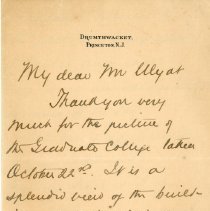 DRUMTHWACKET,
PRINCETON, N.J.
My dear Mr Wyat
Thank you very
much for the picture of
the Graduate College taken
October 22nd. It is a
splendid view of the build-